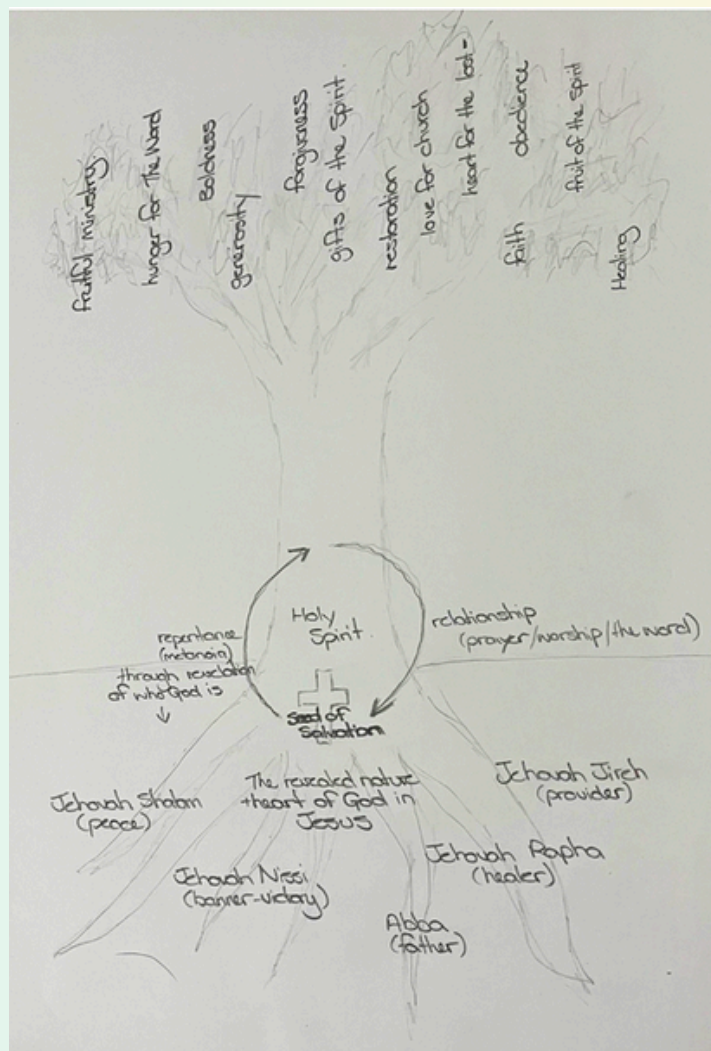 fruitful ministry
hunger for The Word
Boldness
generosity
forgiveness
gifts of the Spirit
restoration
love for church
heart for the lost-
faith
obedience
fruit of the spirit
Healing
Holy
Spirit
repentance
(metanoia)
through revelation
of who God is
relationship
(prayer/worship/the word)
Seed of
Salvation
Jehovah Shalom
(peace)
The revealed nature
+heart of God in
Jesus
Jehovah Jireh
(provider)
Jehovah Nissi
(banner-victory)
Jehovah Rapha
(healer)
Abba
(father)